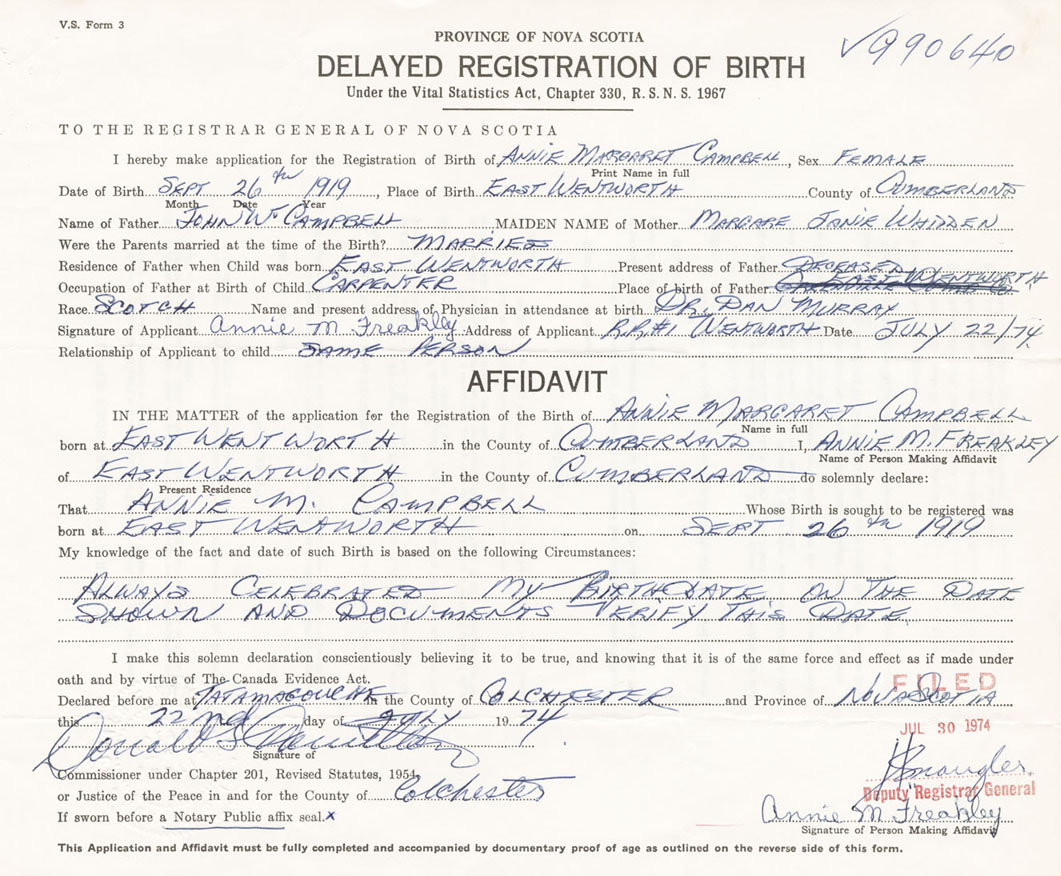 V.S. Form 3
PROVINCE OF NOVA SCOTIA
√990640
DELAYED REGISTRATION OF BIRTH
Under the Vital Statistics Act, Chapter 330, R. S. N. S. 1967
TO THE REGISTRAR GENERAL OF NOVA SCOTIA
I hereby make application for the Registration of Birth of ANNIE MARGARET CAMPBELL, Sex FEMALE
Print Name in full
Date of Birth SEPT 26th 1919, Place of Birth EAST WENTWORTH County of CUMBERLAND
Month Date Year
Name of Father JOHN W. CAMPBELL, MAIDEN NAME of Mother MARGARE JANIE WHIDDEN
Were the Parents married at the time of the Birth? MARRIED
Residence of Father when Child was born EAST WENTWORTH Present address of Father DECEASED
Occupation of Father at Birth of Child CARPENTER Place of birth of Father EAST WENTWORTH
Race SCOTCH Name and present address of Physician in attendance at birth DR. DAN MURRAY
Signature of Applicant Annie M Freakley Address of Applicant R.R.#1 WENTWORTH Date JULY 22/74
Relationship of Applicant to child SAME PERSON
AFFIDAVIT
IN THE MATTER of the application for the Registration of the Birth of ANNIE MARGARET CAMPBELL
Name in full
born at EAST WENTWORTH in the County of CUMBERLAND I, ANNIE M. FREAKLEY
Name of Person Making Affidavit
of EAST WENTWORTH in the County of CUMBERLAND do solemnly declare:
Present Residence
That ANNIE M. CAMPBELL Whose Birth is sought to be registered was
born at EAST WENTWORTH on SEPT 26th 1919
My knowledge of the fact and date of such Birth is based on the following Circumstances:
ALWAYS CELEBRATED MY BIRTHDATE ON THE DATE
SHOWN AND DOCUMENTS VERIFY THIS DATE
I make this solemn declaration conscientiously believing it to be true, and knowing that it is of the same force and effect as if made under
oath and by virtue of The Canada Evidence Act.
FILED
Declared before me at TATAMAGOUCHE in the County of COLCHESTER and Province of NOVA SCOTIA
this 22nd day of JULY 19 74
JUL 30 1974
Donald
Signature of
Commissioner under Chapter 201, Revised Statutes, 1954,
or Justice of the Peace in and for the County of Colchester
Deputy Registrar General
If sworn before a Notary Public affix seal. x
Annie M Freakley
Signature of Person Making Affidavit
This Application and Affidavit must be fully completed and accompanied by documentary proof of age as outlined on the reverse side of this form.